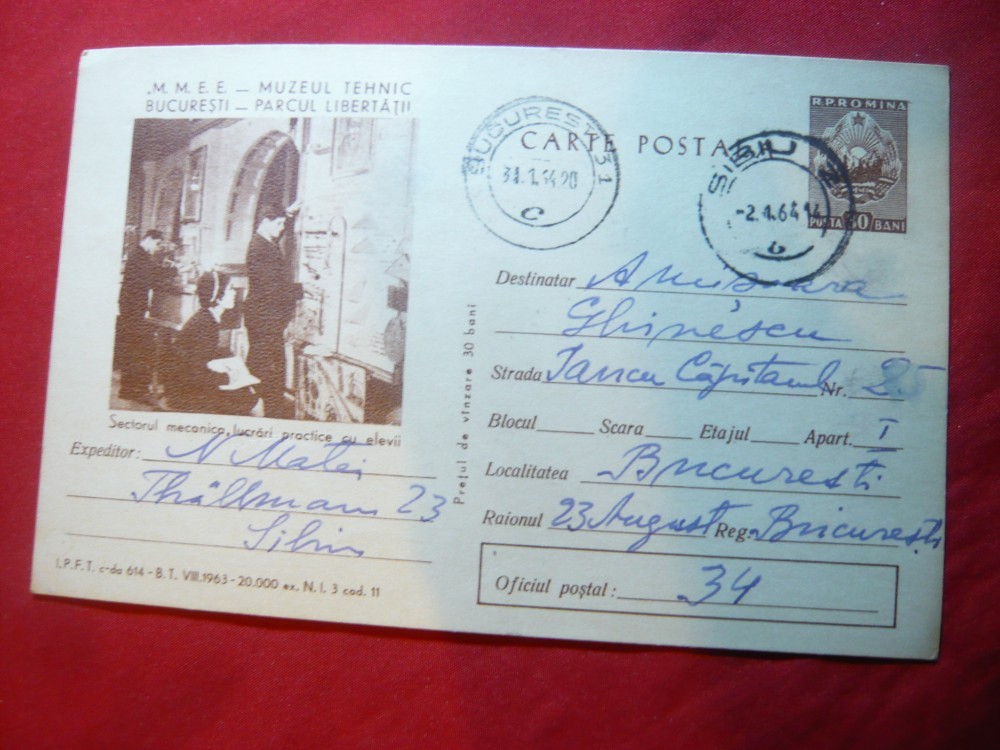 „M. M. E. E. — MUZEUL TEHNIC
BUCUREȘTI — PARCUL LIBERTĂȚII
Sectorul mecanica, lucrări practice cu elevii
Expeditor: N Matei
Thällmann 23
Sibiu
I.P.F.T. c-da 614 - B.T. VIII.1963 - 20.000 ex. N.I. 3 cod. 11
Prețul de vînzare 30 bani
BUCUREȘTI 31
31.1.64 20
C
CARTE POSTA
SIBIU
-2.1.64 14
b
R.P.ROMINA
POSTA 30 BANI
Destinatar
Ghinescu
Strada Iancu Căpitanul Nr. 25
Blocul Scara Etajul Apart. I
Localitatea Bucuresti
Raionul 23 August Reg. București
Oficiul poștal: 34